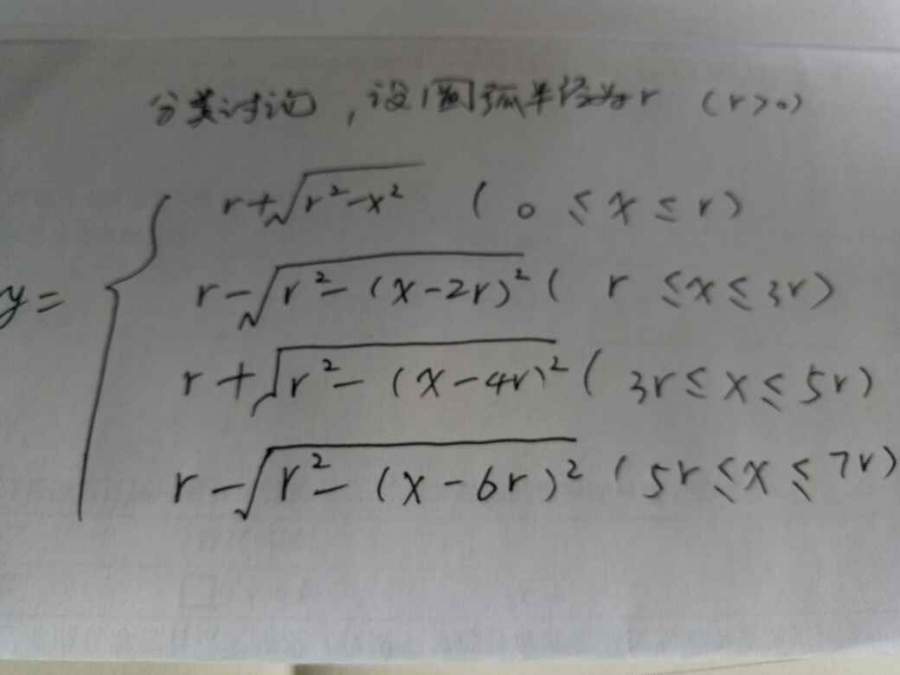 分类讨论,设圆弧半径为r (r>0)
y=
r+√(r²-x²) (0≤x≤r)
r-√(r²-(x-2r)²) (r≤x≤3r)
r+√(r²-(x-4r)²) (3r≤x≤5r)
r-√(r²-(x-6r)²) (5r≤x≤7r)